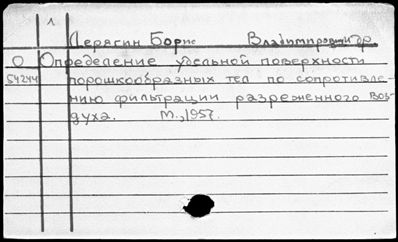 1
Дерягин Борис Владимирович и др.
О Определение удельной поверхности
54244 порошкообразных тел по сопротивле-
нию фильтрации разреженного воз-
духа. М., 1957.